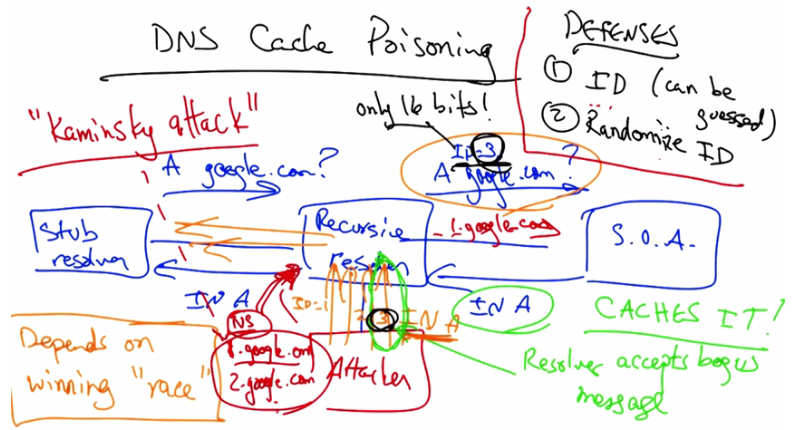 DNS Cache Poisoning
DEFENSES
① ID (can be
guessed)
② Randomize ID
"Kaminsky attack"
only 16 bits!
A google.com?
ID=3
A google.com?
Stub
resolver
Recursive
1.google.com
S.O.A.
IN A
ID=1
3
IN A
IN A
NS
CACHES IT!
Depends on
winning "race"
1.google.com
2.google.com
Attacker
Resolver accepts bogus
message